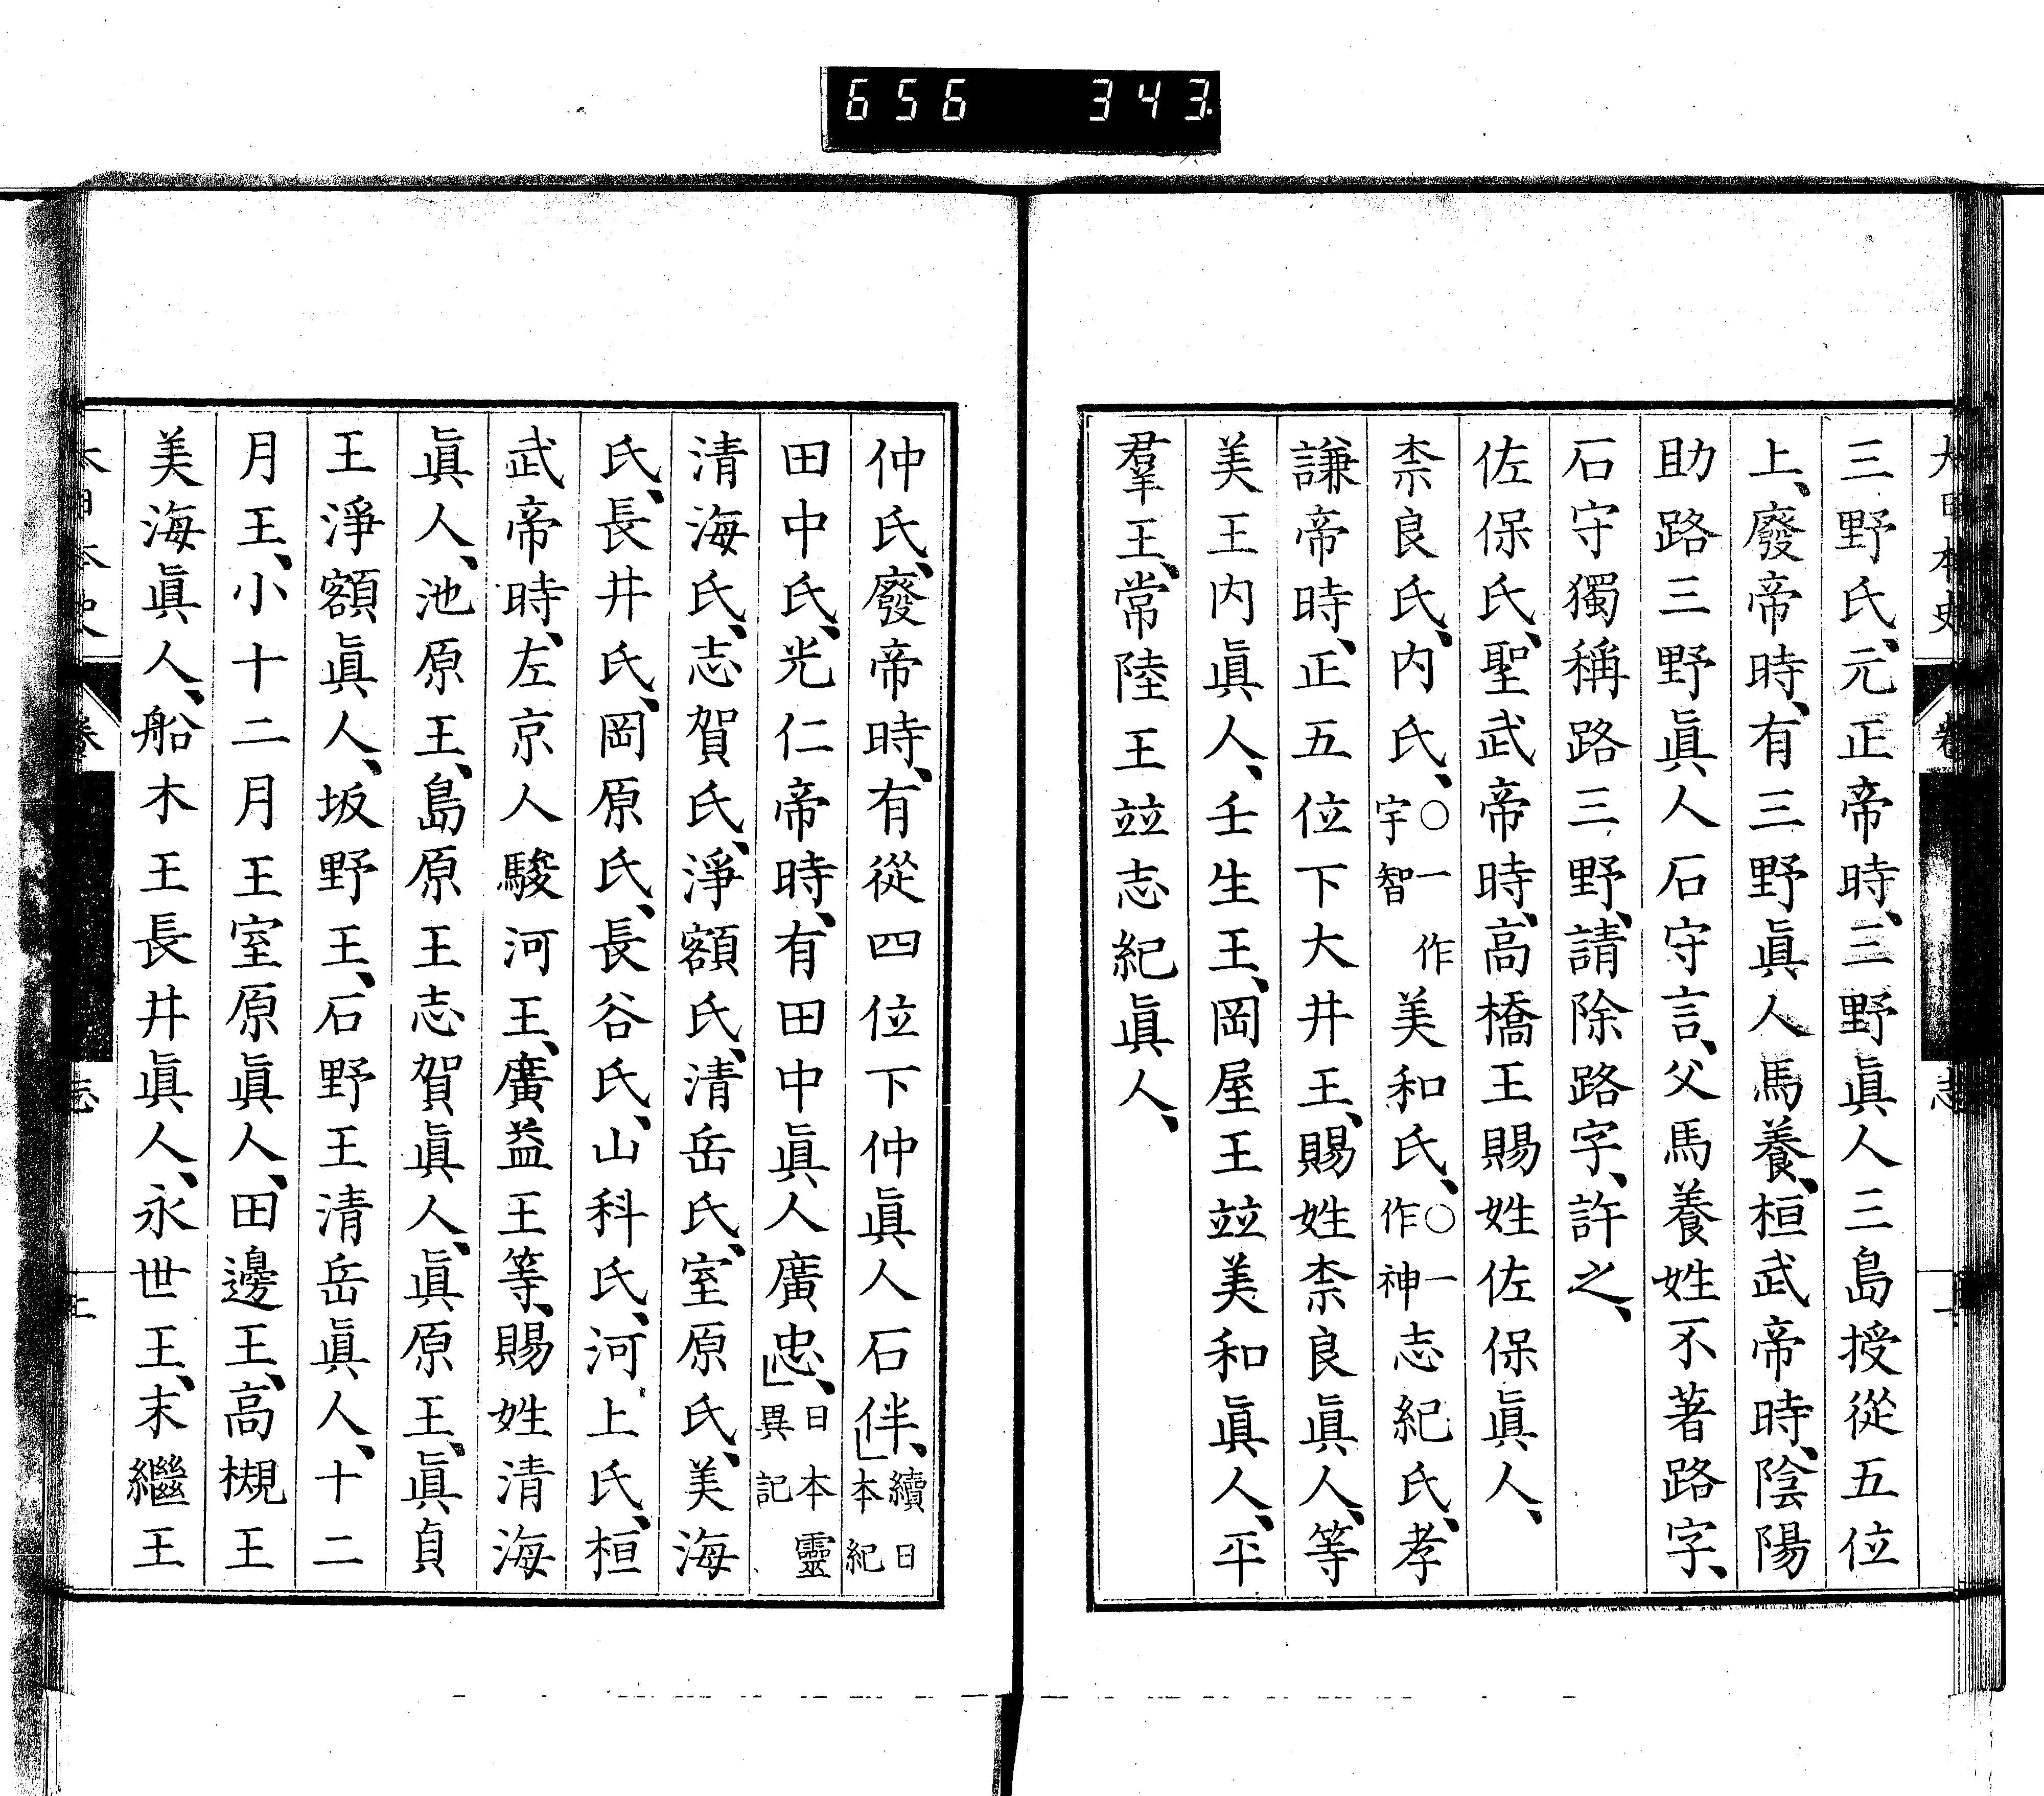 656 343
大日本史 卷 志
三野氏、元正帝時、三野眞人三島授從五位
上、廢帝時、有三野眞人馬養、桓武帝時、陰陽
助路三野眞人石守言、父馬養姓不著路字、
石守獨稱路三野、請除路字、許之、
佐保氏、聖武帝時、高橋王賜姓佐保眞人、
柰良氏、内氏、〇一作宇智美和氏、〇一作神志紀氏、孝
謙帝時、正五位下大井王、賜姓柰良眞人、等
美王内眞人、壬生王、岡屋王竝美和眞人、平
羣王、常陸王竝志紀眞人、
仲氏、廢帝時、有從四位下仲眞人石伴、」續日本紀
田中氏、光仁帝時、有田中眞人廣忠、」日本靈異記
清海氏、志賀氏、淨額氏、清岳氏、室原氏、美海
氏、長井氏、岡原氏、長谷氏、山科氏、河上氏、桓
武帝時、左京人駿河王、廣益王等、賜姓清海
眞人、池原王、島原王志賀眞人、眞原王、眞貞
王淨額眞人、坂野王、石野王清岳眞人、十二
月王、小十二月王室原眞人、田邊王、高槻王
美海眞人、船木王長井眞人、永世王、末繼王
大日本史 卷 志